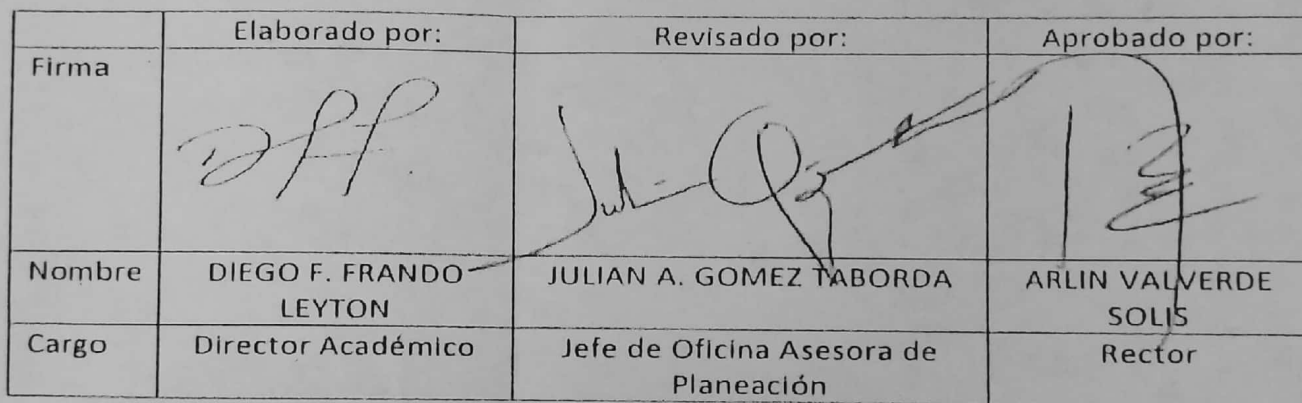 Elaborado por: Revisado por: Aprobado por:
Firma
Nombre DIEGO F. FRANDO JULIAN A. GOMEZ TABORDA ARLIN VALVERDE
LEYTON SOLIS
Cargo Director Académico Jefe de Oficina Asesora de Rector
Planeación